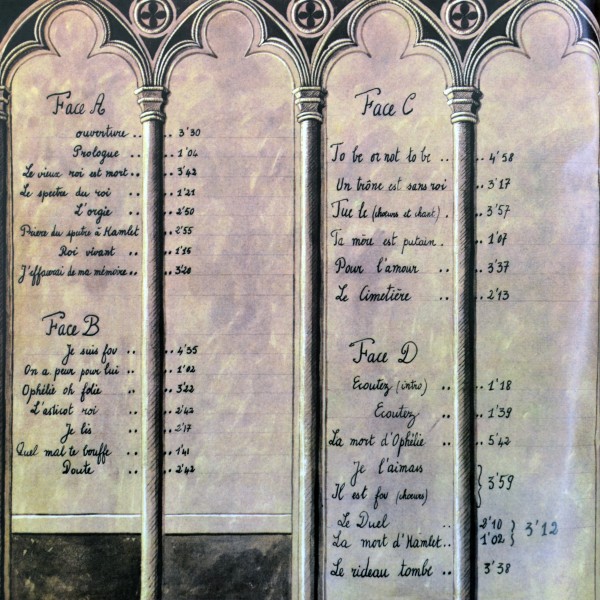 Face A
ouverture .. .. 3'30
Prologue .. .. 1'04
Le vieux roi est mort .. .. 3'42
Le spectre du roi .. .. 1'21
L'orgie .. .. 2'50
Prière du spectre à Hamlet .. 2'55
Roi vivant .. .. 1'15
J'effacerai de ma mémoire .. .. 3'20
Face B
Je suis fou .. .. 4'35
On a peur pour lui .. .. 1'02
Ophélie oh folie .. .. 3'22
L'asticot roi .. .. 2'42
Je lis .. .. 3'17
Quel mal te bouffe .. .. 1'41
Doute .. .. 2'42
Face C
To be or not to be .. .. 4'58
Un trône est sans roi .. 3'17
Tue le (choeurs et chant) . .. 3'57
Ta mère est putain . .. 1'07
Pour l'amour .. .. 3'37
Le Cimetière .. .. 2'13
Face D
Ecoutez (intro) .. .. 1'18
Ecoutez .. .. 1'39
La mort d'Ophélie .. .. 5'42
Je l'aimais
Il est fou (choeurs) } 3'59
Le Duel .. 2'10
La mort d'Hamlet .. 1'02 } 3'12
Le rideau tombe .. .. 3'38